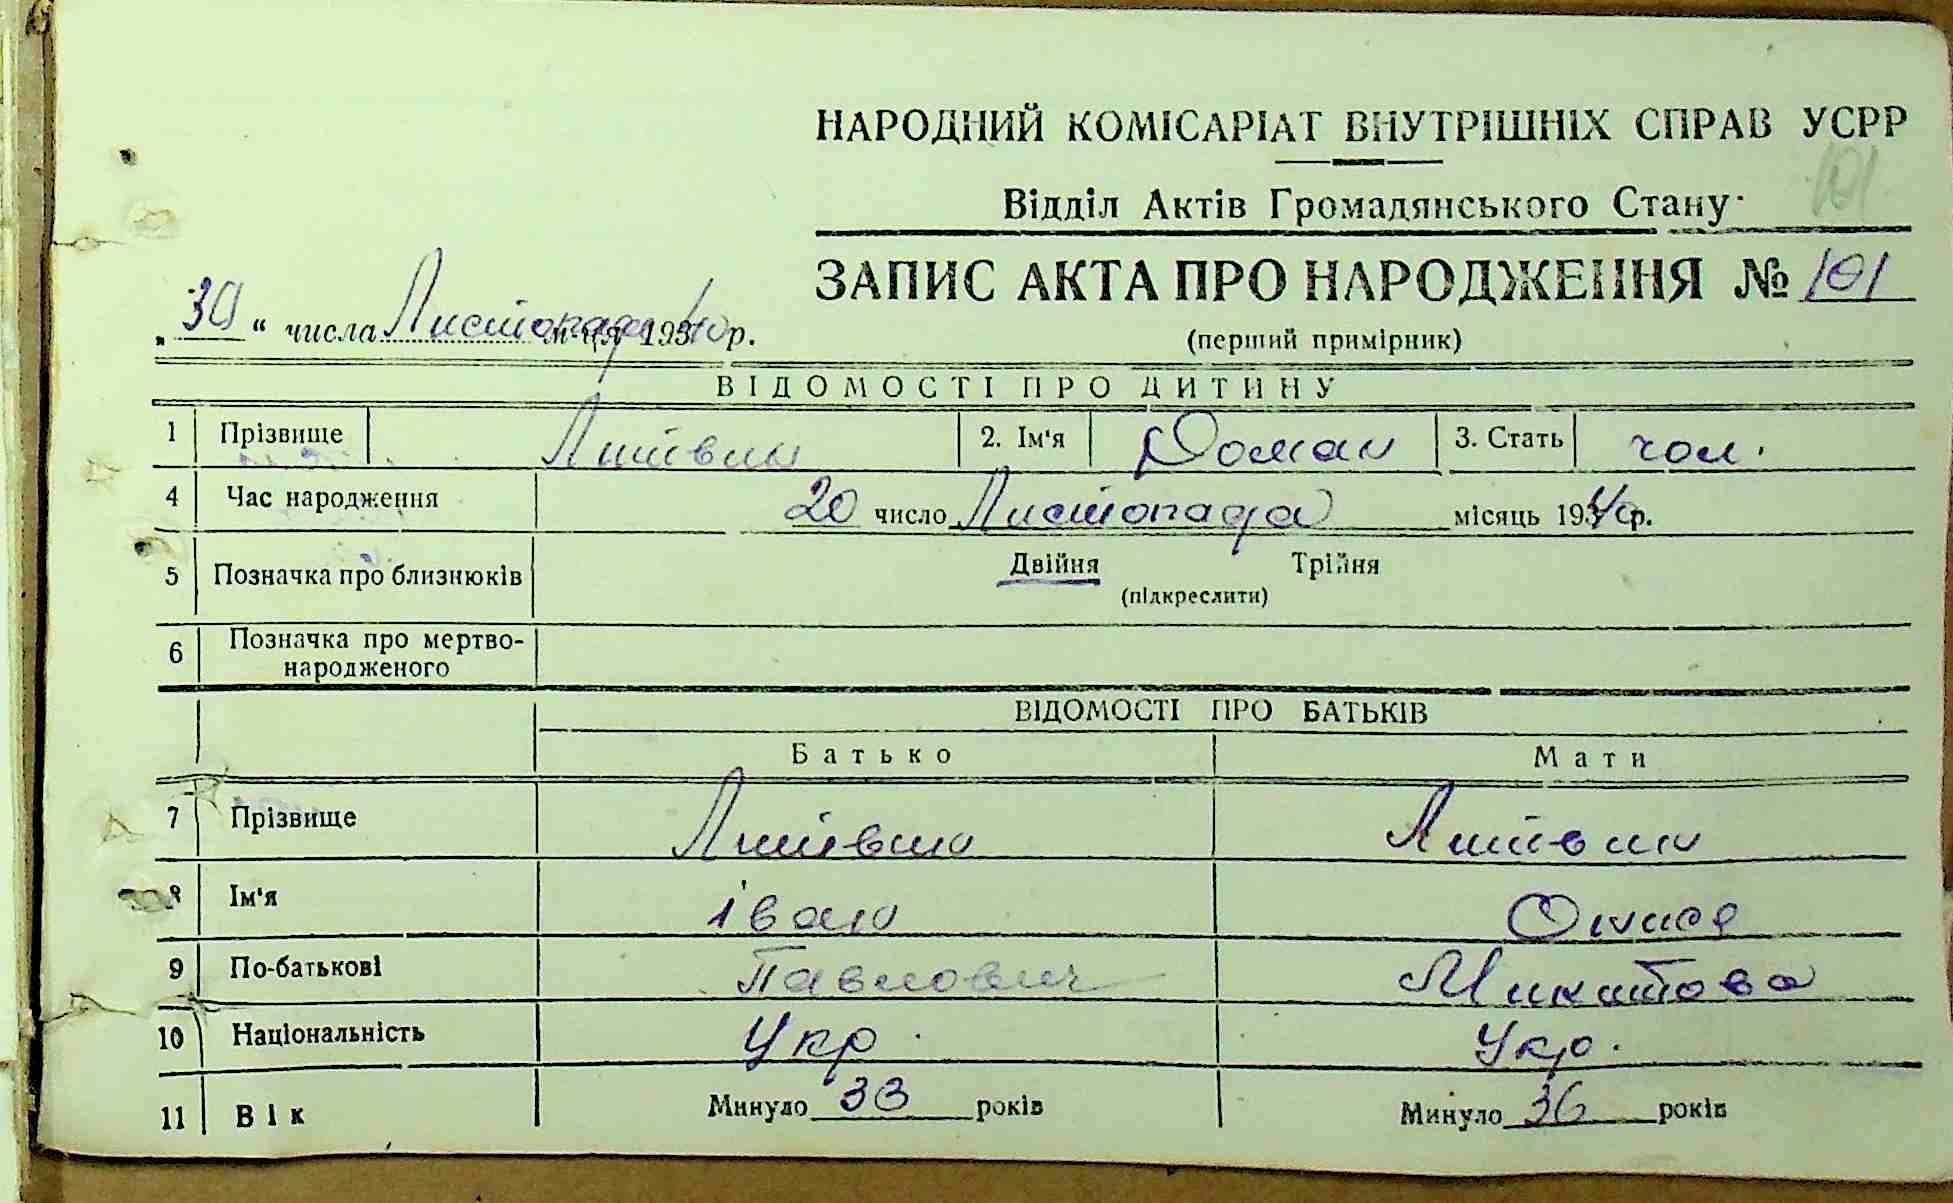 НАРОДНИЙ КОМІСАРІАТ ВНУТРІШНІХ СПРАВ УСРР
101
Відділ Актів Громадянського Стану
ЗАПИС АКТА ПРО НАРОДЖЕННЯ № 101
„30“ числа Листопада м-ця 1940 р.
(перший примірник)
ВІДОМОСТІ ПРО ДИТИНУ
1 Прізвище Литвин 2. Ім'я Роман 3. Стать чол.
4 Час народження 20 число Листопада місяць 1940р.
5 Позначка про близнюків Двійня Трійня
(підкреслити)
6 Позначка про мертво-
народженого
ВІДОМОСТІ ПРО БАТЬКІВ
Батько Мати
7 Прізвище Литвин Литвин
8 Ім'я Іван
9 По-батькові Павлович Микитова
10 Національність Укр. Укр.
11 Вік Минуло 33 років Минуло 36 років